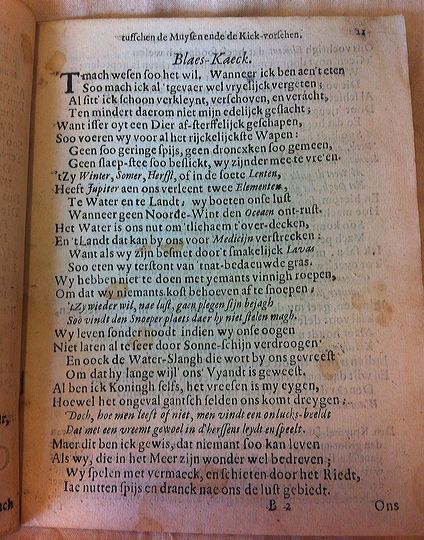 tusschen de Muysen ende de Kick-vorschen. 21
Blaes-Kaeck.
Tmach wesen soo het wil. Wanneer ick ben aen't eten
Soo mach ick al 'tgevaer wel vryelijck vergeten;
Al sit' ick schoon verkleynt, verschoven, en veracht,
Ten mindert daerom niet mijn edelijck geslacht;
Want isser oyt een Dier af-sterffelijck geschapen,
Soo voeren wy voor al het rijckelijckste Wapen:
Geen soo geringe spijs, geen droncxken soo gemeen,
Geen slaep-stee soo beslickt, wy zijnder mee te vreen.
'tZy Winter, Somer, Herfst, of in de soete Lenten,
Heeft Jupiter aen ons verleent twee Elementen,
Te Water en te Landt, wy boeten onse lust
Wanneer geen Noorde-Wint den Oceaen ont-rust.
Het Water is ons nut om 'tlichaem t'over-decken,
En 'tLandt dat kan by ons voor Medicijn verstrecken:
Want als wy zijn besmet door't smakelijck Lavas
Soo eten wy terstont van 'tnat-bedaeuwde gras.
Wy hebben niet te doen met yemants vinnigh roepen,
Om dat wy niemants kost behoeven af te snoepen:
'tZy wieder wil, nae lust, gaen plegen sijn bejagh
Soo vindt den Snoeper plaets daer hy niet stelen magh.
Wy leven sonder noodt indien wy onse oogen
Niet laten al te seer door Sonne-schijn verdroogen
En oock de Water-Slangh die wort by ons gevreest
Om dat hy lange wijl' ons' Vyandt is geweest.
Al ben ick Koningh selfs, het vreesen is my eygen,
Hoewel het ongeval gantsch selden ons komt dreygen:
Doch, hoe men leeft of niet, men vindt een onlucks-beeldt
Dat met een vreemt gewoel in d'herssens leydt en speelt.
Maer dit ben ick gewis, dat niemant soo kan leven
Als wy, die in het Meer zijn wonder wel bedreven;
Wy spelen met vermaeck, en schieten door het Riedt,
Iae nutten spijs en dranck nae ons de lust gebiedt.
B 2 Ons